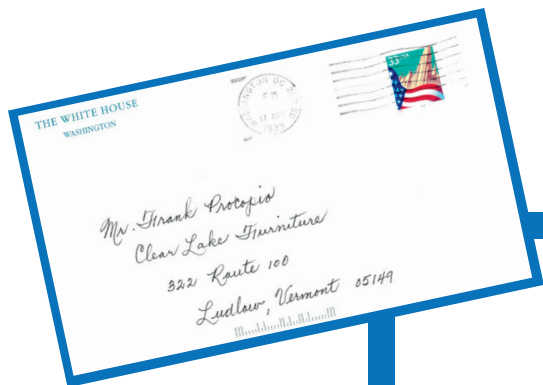 THE WHITE HOUSE
WASHINGTON
PM
1999
33
Mr. Frank Procopio
Clear Lake Furniture
322 Route 100
Ludlow, Vermont 05149